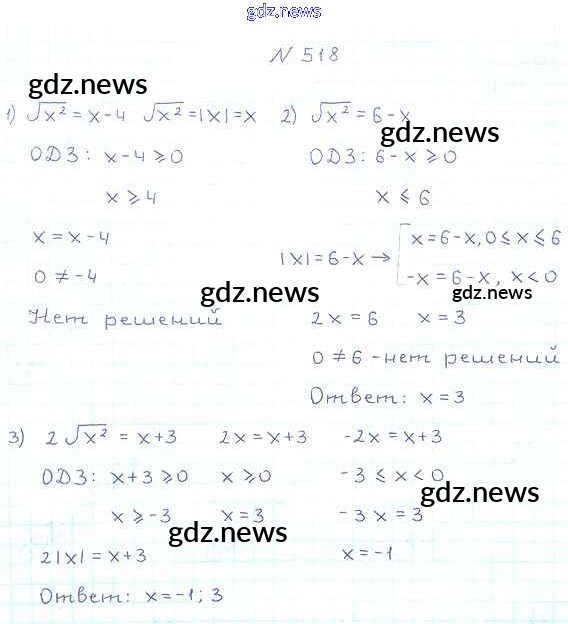 gdz.news
N 518
gdz.news
1) √x² = x - 4 √x² = |x| = x
ОДЗ: x - 4 ⩾ 0
x ⩾ 4
x = x - 4
0 ≠ -4
Нет решений
2) √x² = 6 - x
gdz.news
ОДЗ: 6 - x ⩾ 0
x ⩽ 6
|x| = 6 - x → [ x = 6 - x, 0 ⩽ x ⩽ 6
-x = 6 - x, x < 0
gdz.news gdz.news
2x = 6 x = 3
0 ≠ 6 - нет решений
Ответ: x = 3
3) 2√x² = x + 3 2x = x + 3 -2x = x + 3
ОДЗ: x + 3 ⩾ 0 x ⩾ 0 -3 ⩽ x < 0
gdz.news
x ⩾ -3 x = 3 -3x = 3
gdz.news
2|x| = x + 3 x = -1
Ответ: x = -1; 3